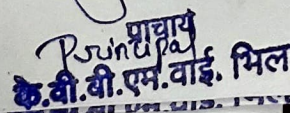 प्राचार्य
Principal
के.वी.बी.एम.वाई. भिल